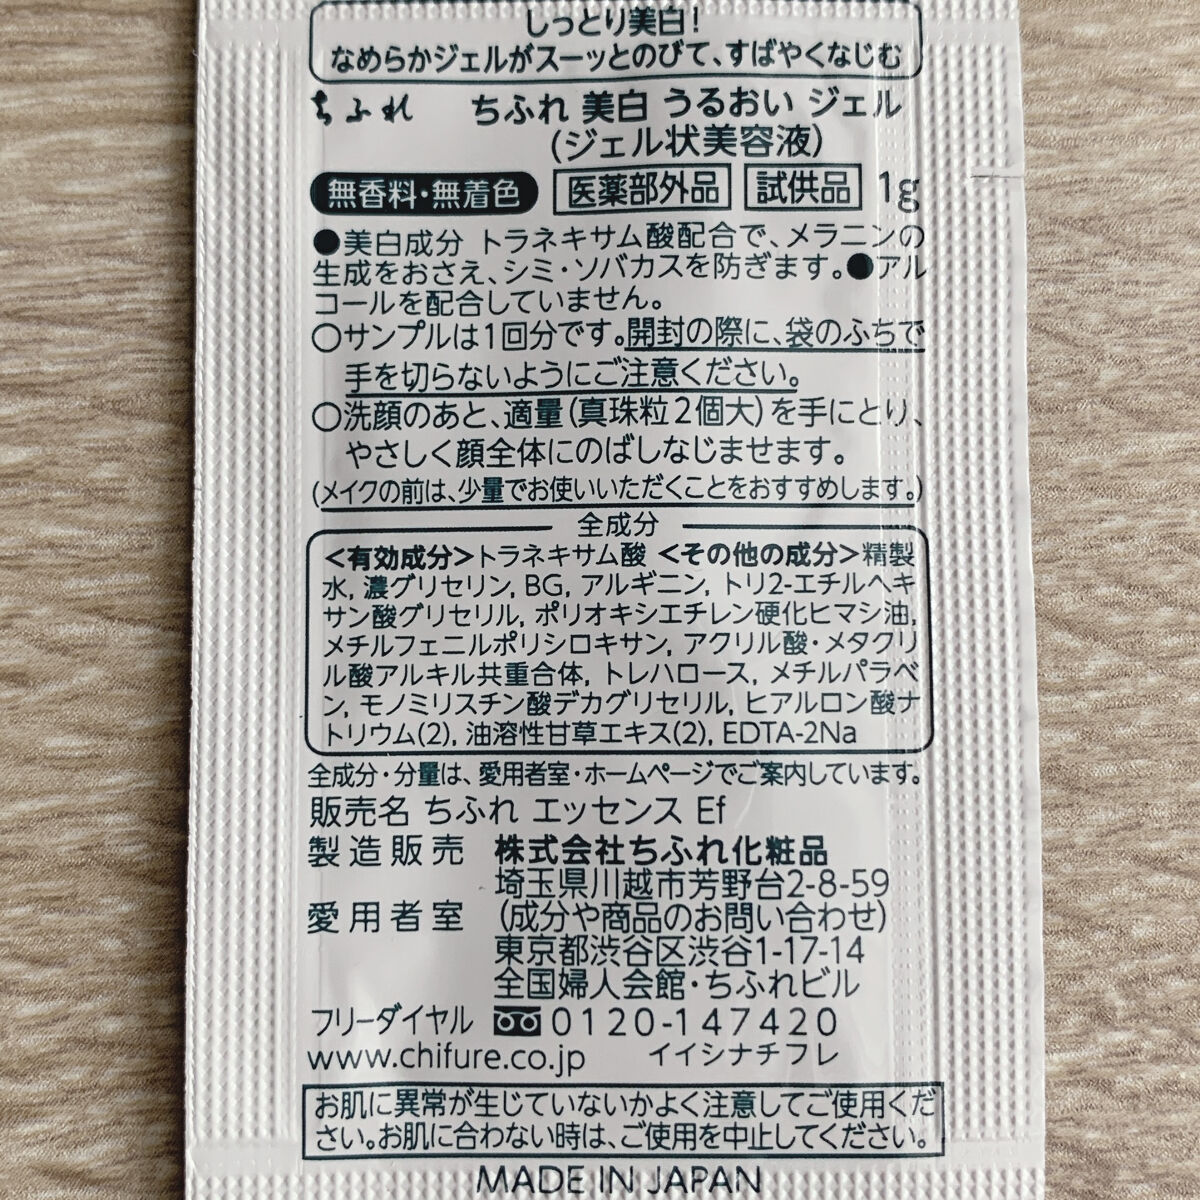 しっとり美白!
なめらかジェルがスーッとのびて、すばやくなじむ
ちふれ ちふれ 美白 うるおい ジェル
(ジェル状美容液)
無香料・無着色 医薬部外品 試供品 1g
●美白成分 トラネキサム酸配合で、メラニンの
生成をおさえ、シミ・ソバカスを防ぎます。●アル
コールを配合していません。
○サンプルは1回分です。開封の際に、袋のふちで
手を切らないようにご注意ください。
○洗顔のあと、適量(真珠粒2個大)を手にとり、
やさしく顔全体にのばしなじませます。
(メイクの前は、少量でお使いいただくことをおすすめします。)
全成分
<有効成分>トラネキサム酸 <その他の成分>精製
水, 濃グリセリン, BG, アルギニン, トリ2-エチルヘキ
サン酸グリセリル, ポリオキシエチレン硬化ヒマシ油,
メチルフェニルポリシロキサン, アクリル酸・メタクリ
ル酸アルキル共重合体, トレハロース, メチルパラベ
ン, モノミリスチン酸デカグリセリル, ヒアルロン酸ナ
トリウム(2), 油溶性甘草エキス(2), EDTA-2Na
全成分・分量は、愛用者室・ホームページでご案内しています。
販売名 ちふれ エッセンス Ef
製造販売 株式会社ちふれ化粧品
埼玉県川越市芳野台2-8-59
愛用者室 (成分や商品のお問い合わせ)
東京都渋谷区渋谷1-17-14
全国婦人会館・ちふれビル
フリーダイヤル 0120-147420
www.chifure.co.jp イイシナチフレ
お肌に異常が生じていないかよく注意してご使用くだ
さい。お肌に合わない時は、ご使用を中止してください。
MADE IN JAPAN